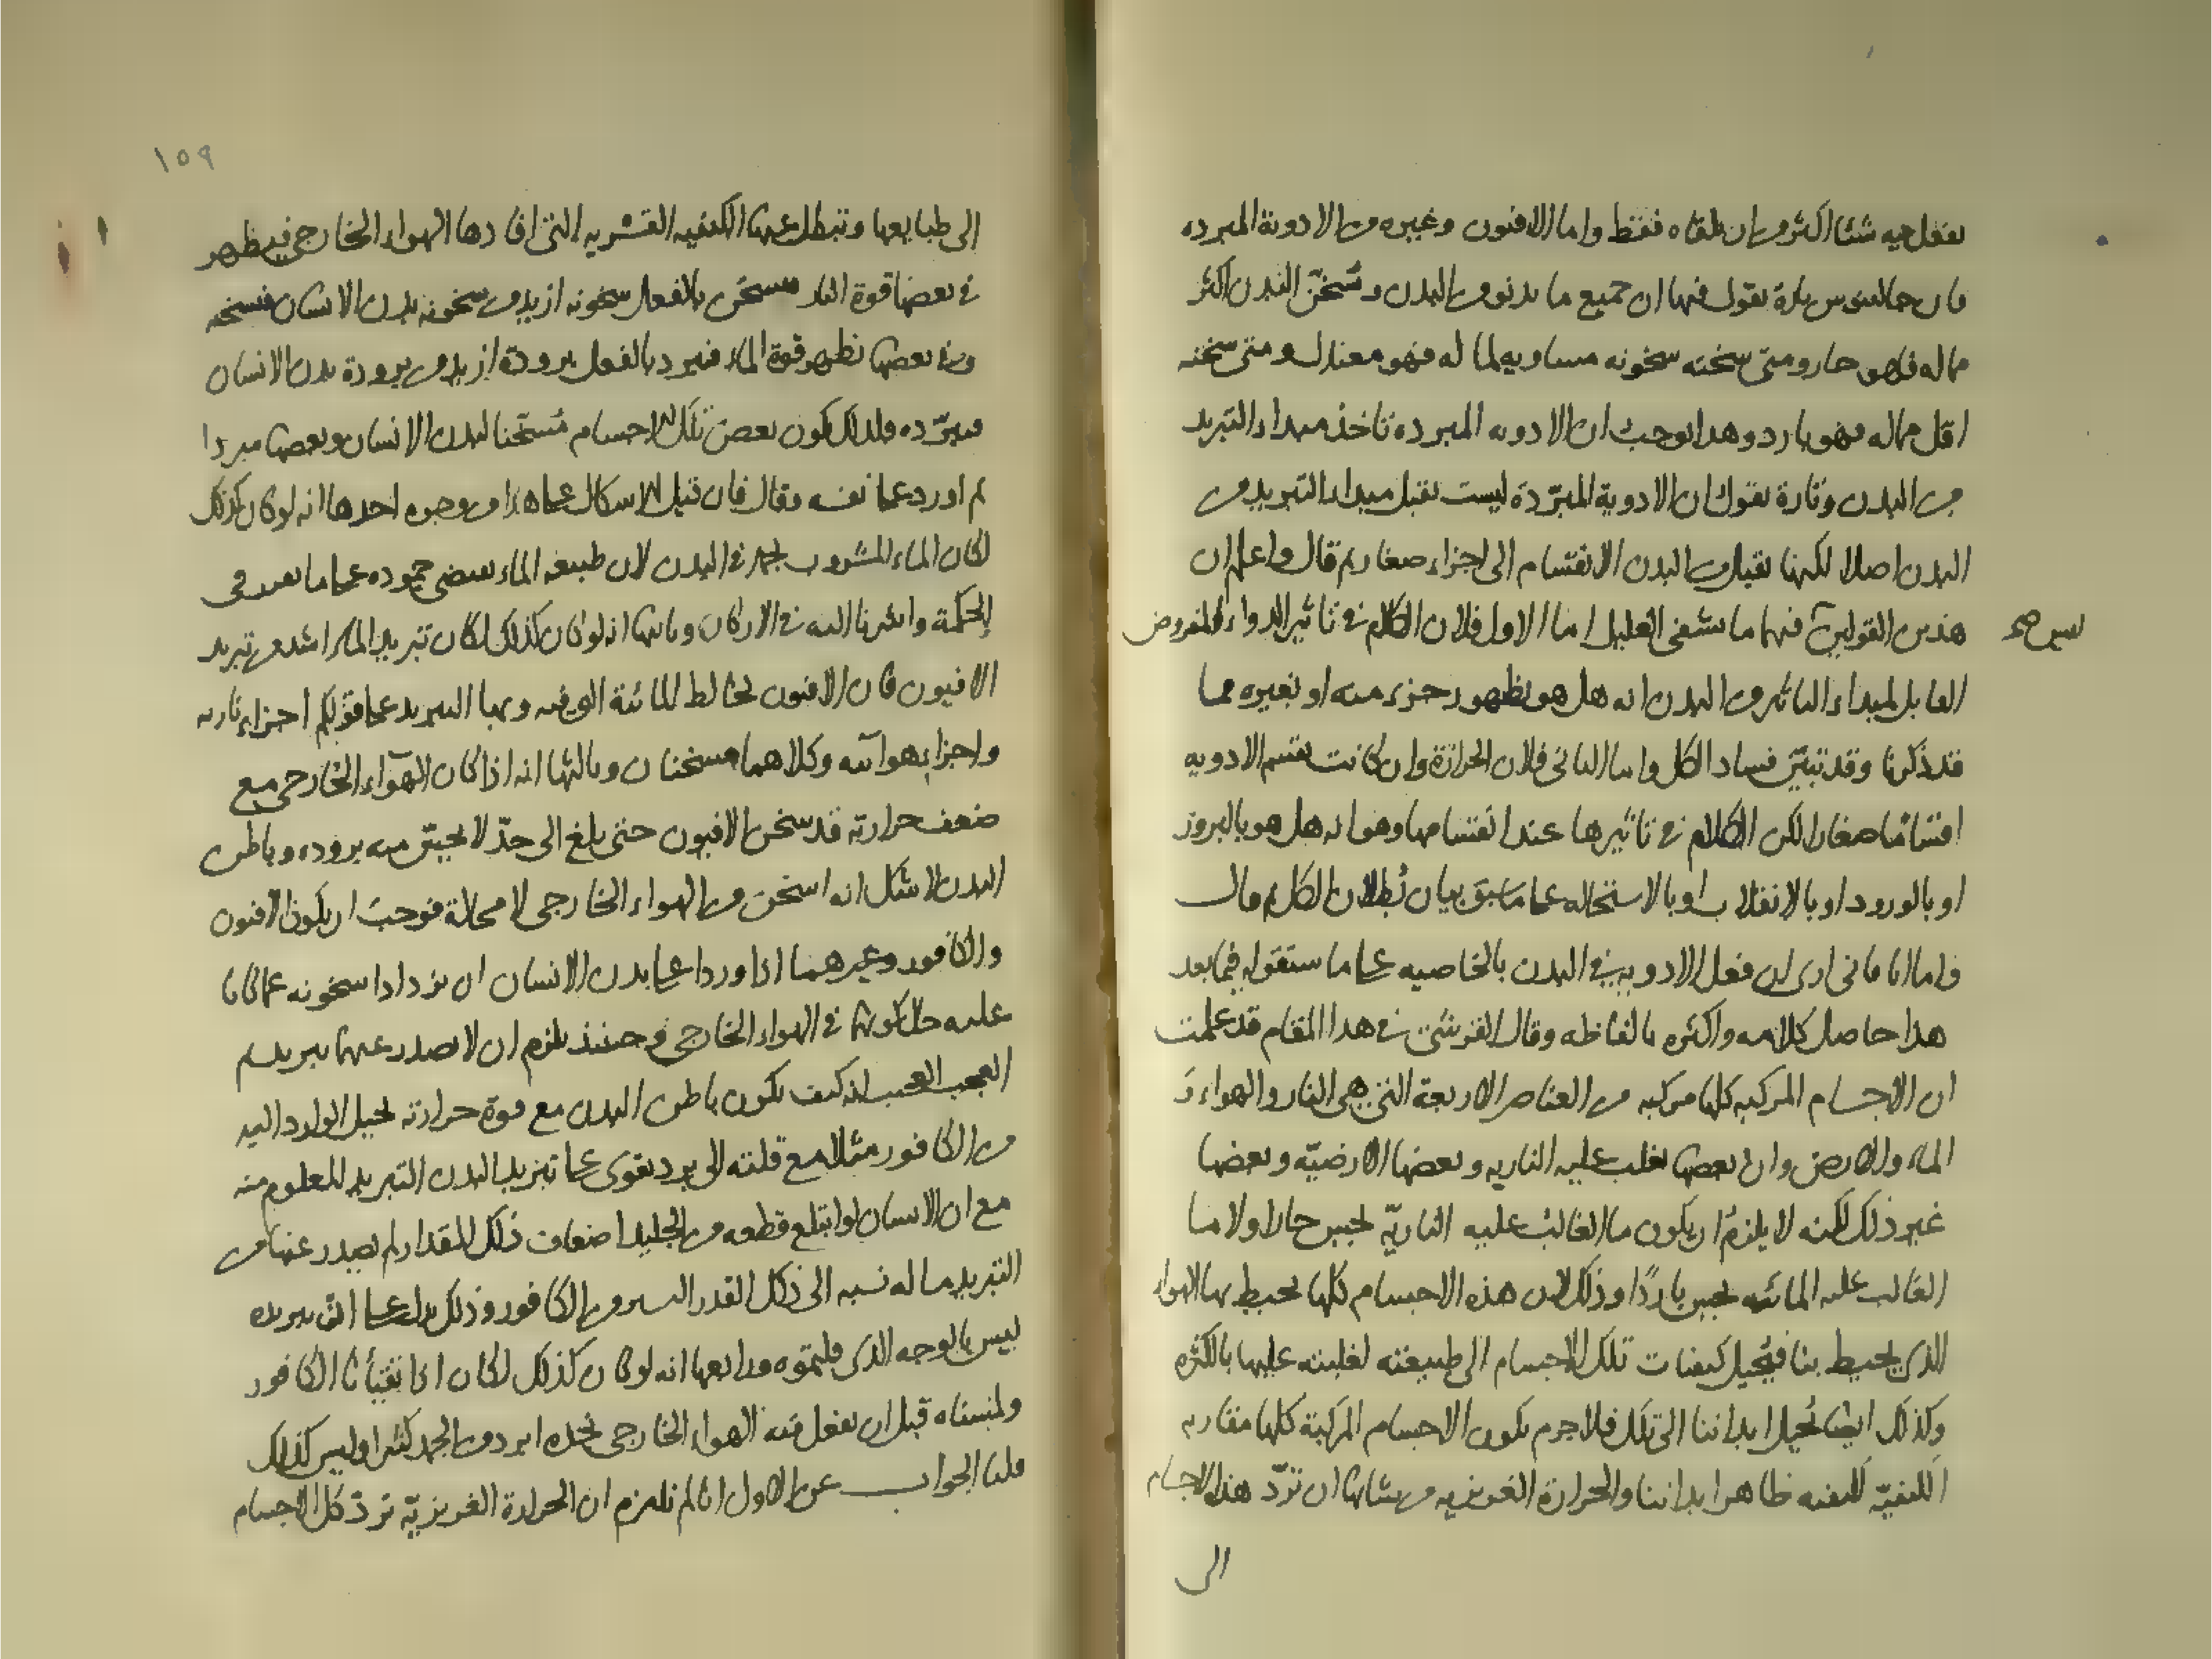 يفعل فيه شيئا اكثر من ان يلقاه فقط واما الافيون وغيره من الادوية المبرده
فان جالينوس تارة يقول فيها ان جميع ما يدنو من البدن وتسخن البدن اكثر
مما له فهو حار ومتى سخنته سخونه مساويه لما له فهو معتدل ومتى سخنته
اقل مما له فهو بارد وهذا يوجب ان الادويه المبرده تاخذ مبداء التبريد
من البدن وتارة يقول ان الادوية المبرّدة ليست تقبل مبداء التبريد من
البدن اصلا لكنها تقبل من البدن الانقسام الى اجزاء صغار ثم قال واعلم ان
هذين القولين فيهما ما يشفى العليل اما الاول فلان الكلام فى تاثير الدواء المفروض
القابل لمبداء التاثير من البدن انه هل هو بظهور جزء منه او بغيره مما
قد ذكرنا وقد تبيّن فساد الكل واما الثانى فلان الحرارة وان كانت تقسم الادويه
اقساما صغارا لكن الكلام فى تاثيرها عند انقسامها وهو انه هل هو بالبروز
او بالورود او بالانقلاب او بالاستحاله على ما سبق بيان بُطلان الكل ثم قال
واما انا فانى ارى ان فعل الادويه فى البدن بالخاصيه على ما ستقوله فيما بعد
هذا حاصل كلامه واكثره بالفاظه وقال القرشى فى هذا المقام قد علمت
ان الاجسام المركبه كلها مركبه من العناصر الاربعة التى هى النار والهواء و
الماء والارض وان بعضها تغلب عليه الناريه وبعضها الارضيّه وبعضها
غير ذلك لكنه لا يلزم ان يكون ما الغالب عليه الناريّه يحس حارا ولا ما
الغالب عليه المائيه يحس باردًا وذلك لان هذه الاجسام كلها يحيط بها الهواء
الذى يحيط بنا فيُحيل كيفيات تلك الاجسام الى طبيعته لغلبته عليها بالكثره
وكذلك ايضا تُحيل ابداننا الى تلك فلا جرم يكون الاجسام المركبة كلها متقاربه
الكيفيّه لكيفيه ظاهر ابداننا والحرارة الغريزيه من شانها ان تردّ هذه الاجسام
الى
١٥٩
الى طبايعها وتبطل عنها الكيفيه القسريه التى افادها الهواء الخارجى فيظهر
فى بعضها قوة النار فيسخن بالفعل سخونه ازيد من سخونه بدن الانسان فيسخنه
وفى بعضها تظهر قوة الماء فيبرد بالفعل برودة ازيد من برودة بدن الانسان
فيبرّده ولذلك يكون بعض تلك الاجسام مُسخّنا لبدن الانسان وبعضها مبردا
ثم اورد على نفسه وقال فان قيل الاشكال على هذا من وجوه احدها انه لو كان كذلك
لكان الماء المشروب يجمد فى البدن لان طبيعه الماء تقتضى جموده على ما تعرف فى
الحكمة واشرنا اليه فى الاركان وثانيها انه لو كان كذلك لكان تبريد الماء اشد من تبريد
الافيون فان الافيون يخالط المائية التى فيه وبها التبريد على قولكم اجزاء ناريه
واجزاء هوائيه وكلاهما مسخنان وثالثها انه اذا كان الهوآء الخارجى مع
ضعف حرارته قد سخن الافيون حتى بلغ الى حدّ لا يحسّ منه بروده وباطن
البدن لا شك انه اسخن من الهواء الخارجى لا محالة فوجب ان يكون الافيون
والكافور وغيرهما اذا وردا على بدن الانسان ان يزدادا سخونه عما كانا
عليه حال كونهما فى الهواء الخارجى وحينئذ يلزم ان لا يصدر عنهما تبريد ثم
العجب العجيب انه كيف يكون باطن البدن مع قوة حرارته يحيل الوارد اليه
من الكافور مثلا مع قلته الى برد يقوى على تبريد البدن التبريد المعلوم منه
مع ان الانسان لو ابتلع قطعه من الجليد اضعاف ذلك المقدار لم يصدر عنها من
التبريد ما له نسبه الى ذلك القدر اليسير من الكافور وذلك يدل على ان تبريده
ليس بالوجه الذى قلتموه ورابعها انه لو كان كذلك لكان اذا تقيأنا الكافور
ولمسناه قبل ان يفعل فيه الهواء الخارجى نجده ابرد من الجمد كثيرا وليس كذلك
قلنا الجواب عن الاول انا لم نلتزم ان الحرارة الغريزيّه تردّ كل الاجسام